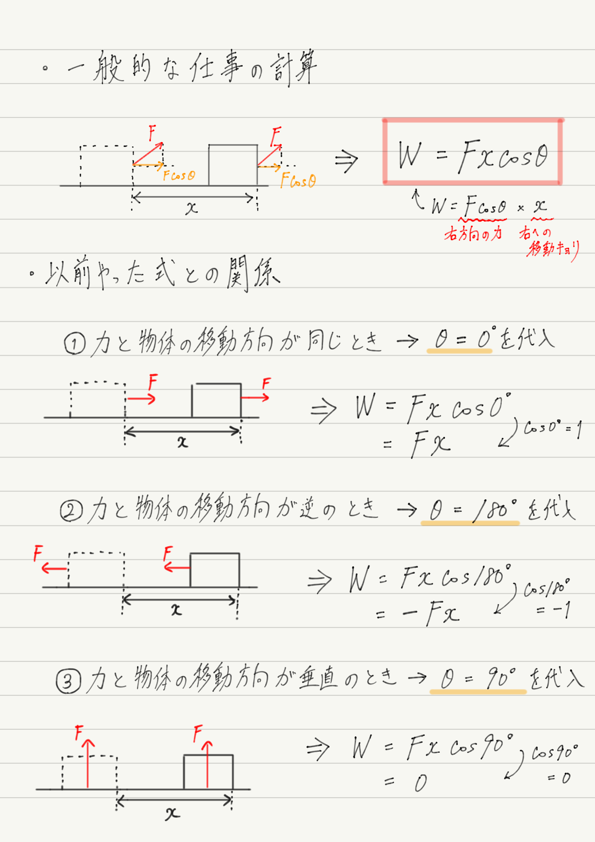 ・一般的な仕事の計算
F F
Fcosθ Fcosθ
x
⇒ W = Fxcosθ
W = Fcosθ × x
右方向の力 右への
移動キョリ
・以前やった式との関係
① 力と物体の移動方向が同じとき → θ = 0°を代入
F F
x
⇒ W = Fx cos0°
= Fx
cos0° = 1
② 力と物体の移動方向が逆のとき → θ = 180°を代入
F F
x
⇒ W = Fx cos180°
= -Fx
cos180°
= -1
③ 力と物体の移動方向が垂直のとき → θ = 90°を代入
F F
x
⇒ W = Fx cos90°
= 0
cos90°
= 0